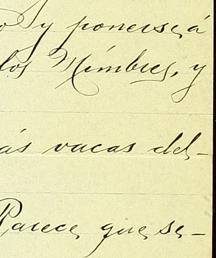 o y ponerse á
los Nimbres, y
ás vacas del-
Parece que se-